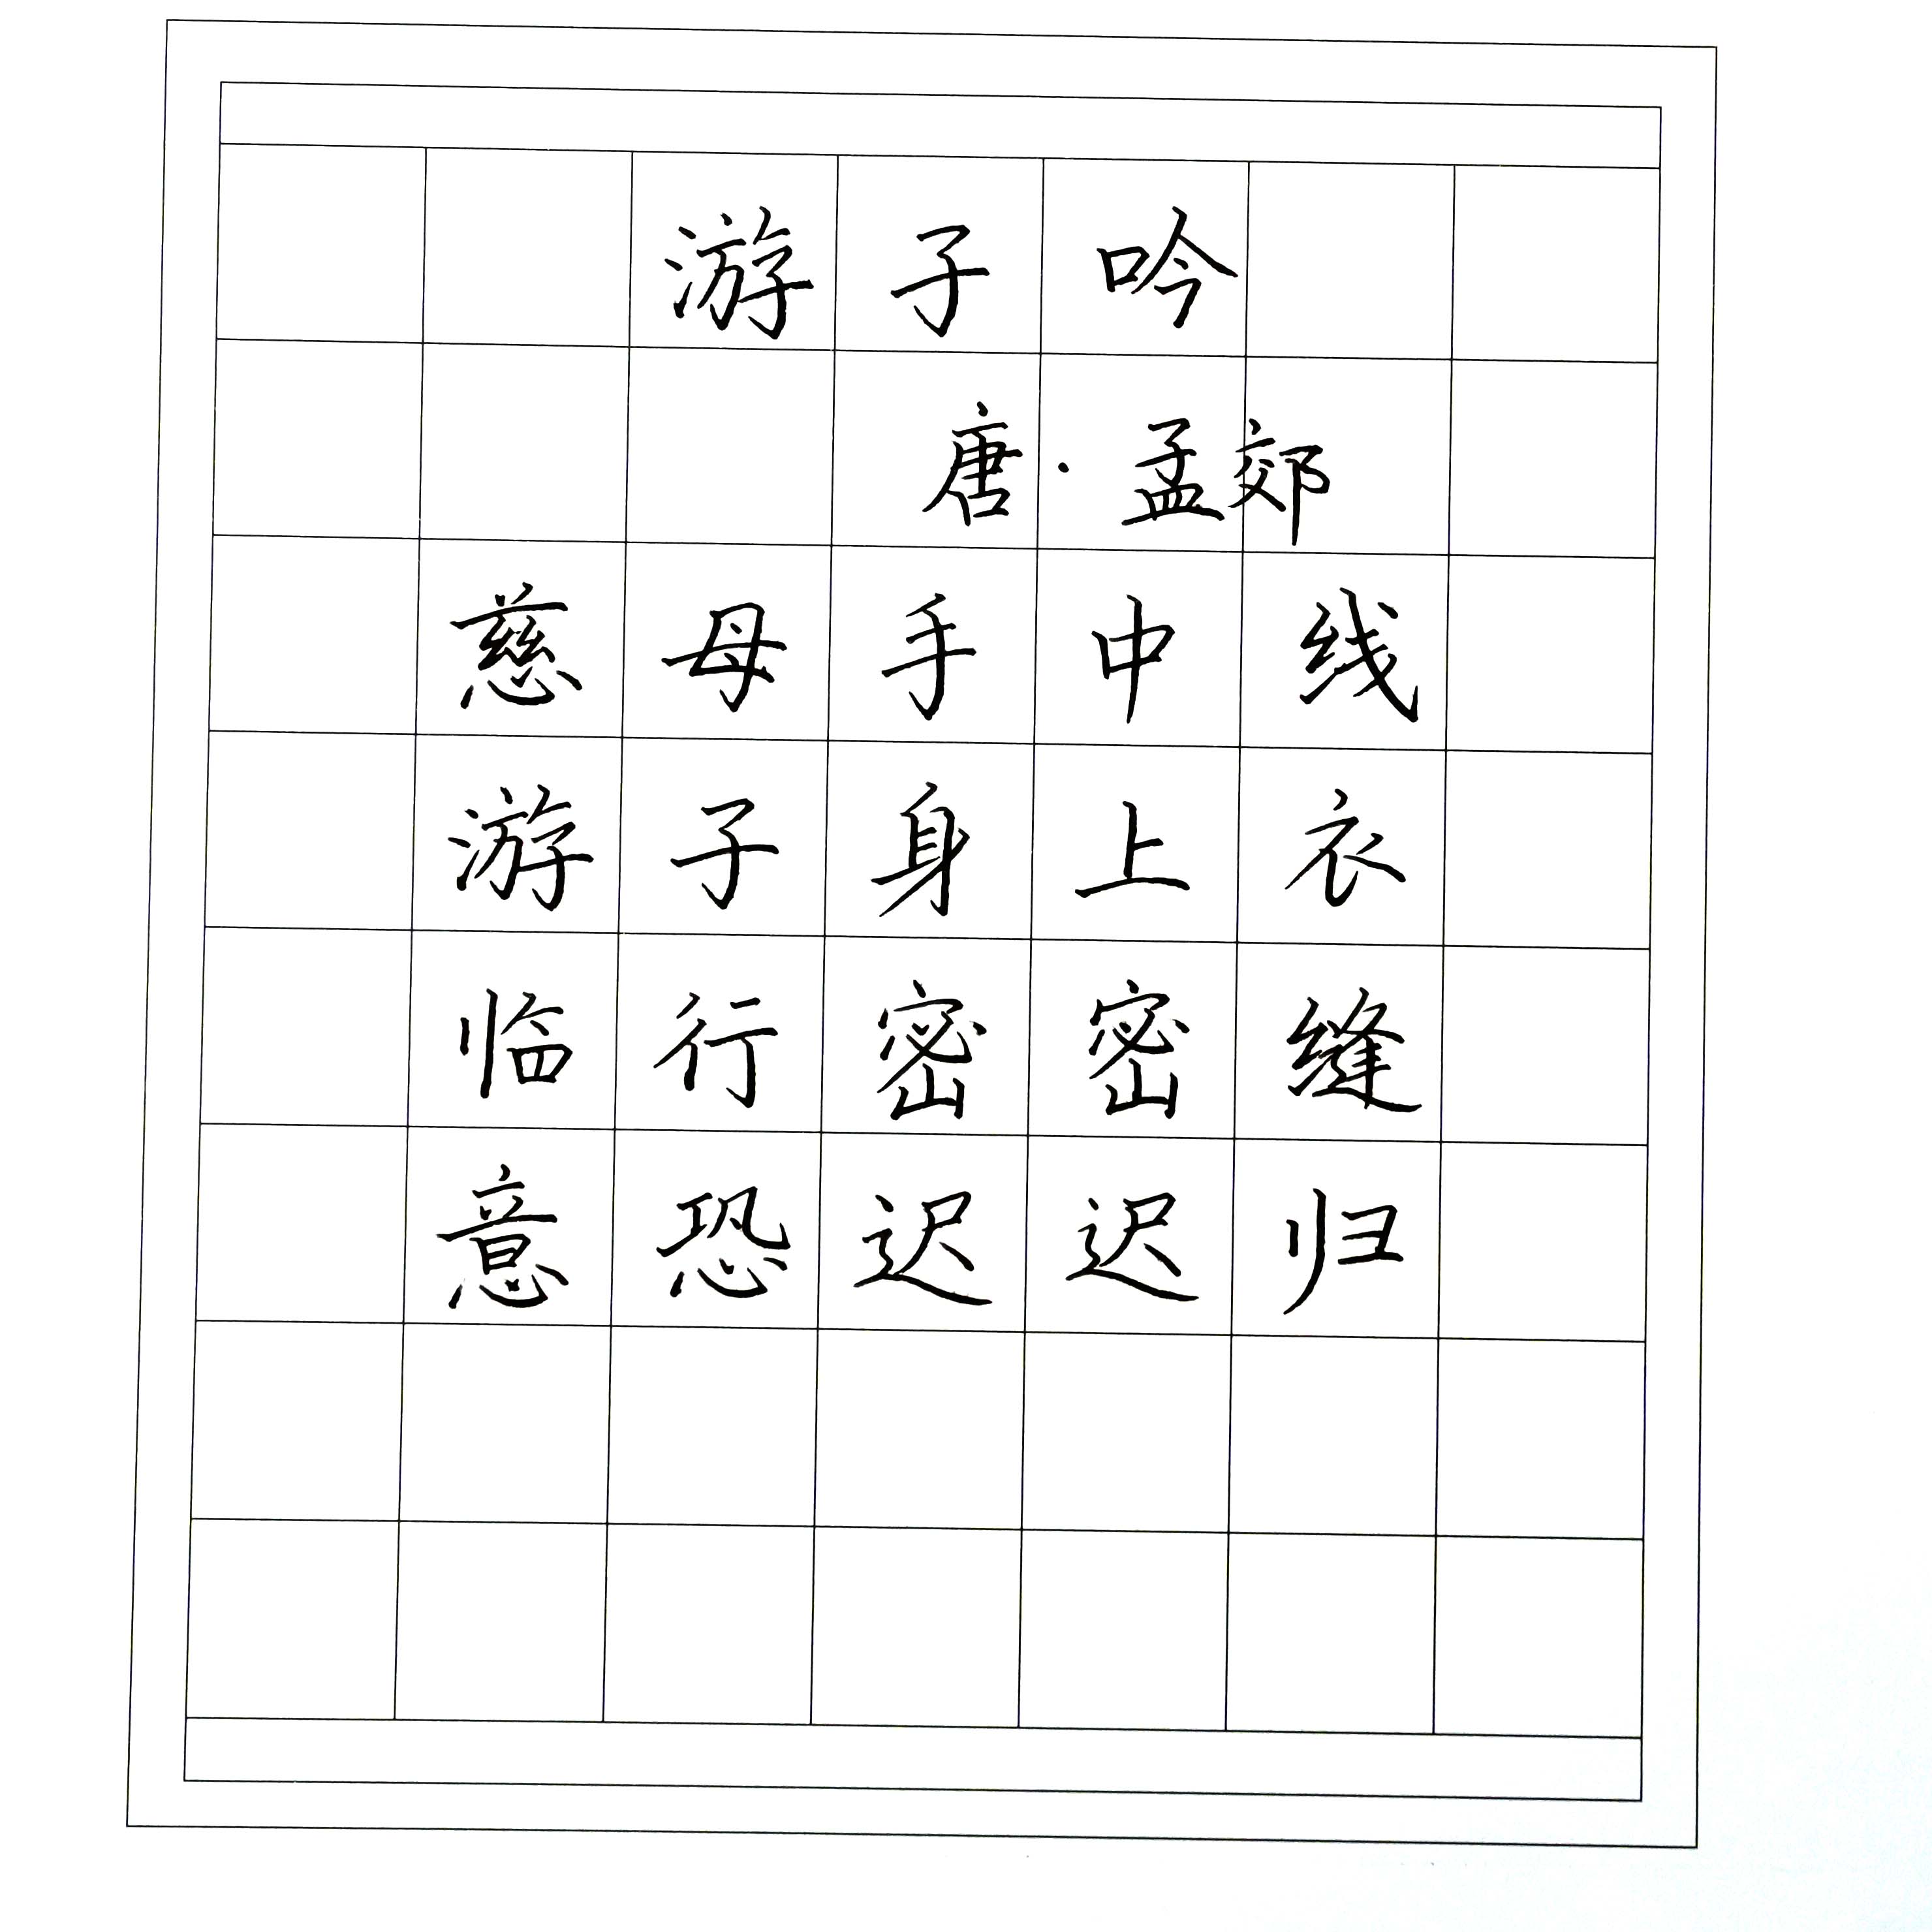 游子吟
唐·孟郊
慈母手中线
游子身上衣
临行密密缝
意恐迟迟归